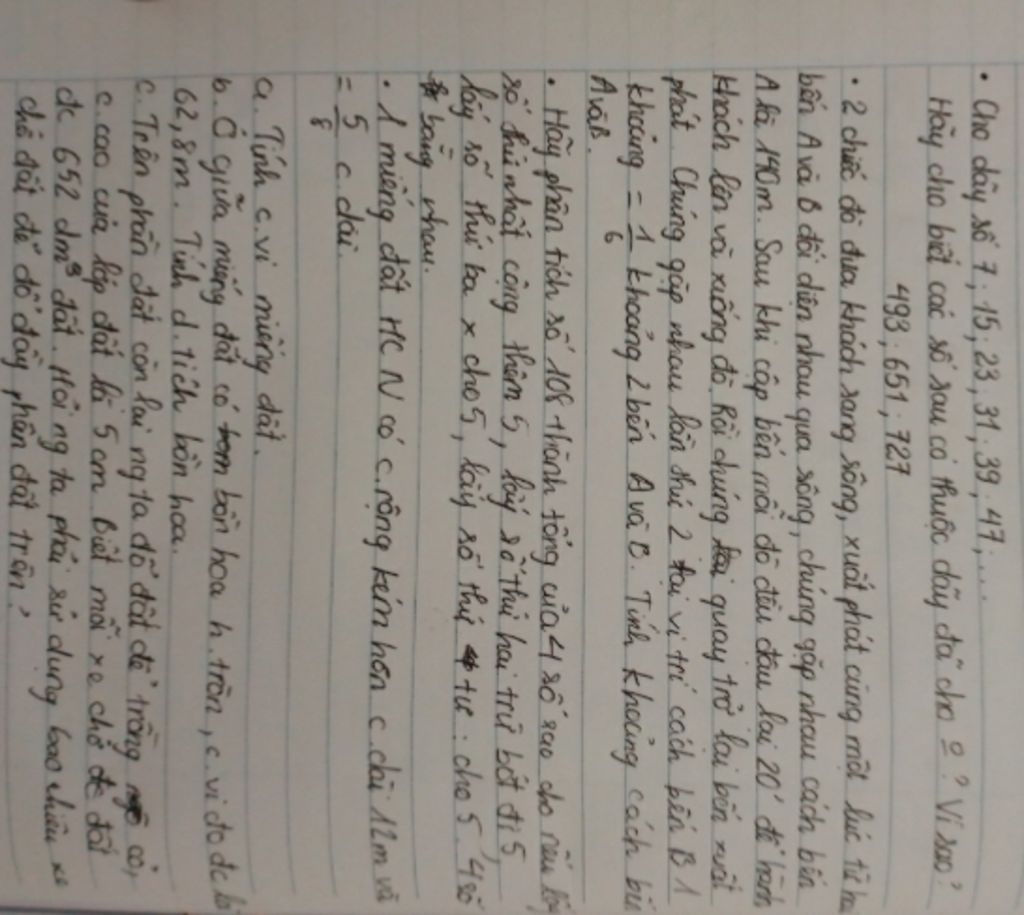 • Cho dãy số 7, 15, 23, 31, 39, 47, ...
Hãy cho biết các số sau có thuộc dãy đã cho o ? Vì sao?
493, 651, 727
• 2 chiếc đò đưa khách sang sông, xuất phát cùng một lúc từ hai
bến A và B đối diện nhau qua sông, chúng gặp nhau cách bến
A là 140m. Sau khi cập bến mỗi đò đều đậu lại 20' để hành
khách lên và xuống đò. Rồi chúng quay trở lại bến xuất
phát. Chúng gặp nhau lần thứ 2 tại vị trí cách bến B 1
khoảng = 1/6 khoảng 2 bến A và B. Tính khoảng cách bến
A và B.
• Hãy phân tích số 108 thành tổng của 4 số sao cho nếu lấy
số thứ nhất cộng thêm 5, lấy số thứ hai trừ bớt đi 5,
lấy số thứ ba x cho 5, lấy số thứ tư : cho 5. 4 số
bằng nhau.
• 1 miếng đất HCN có c.rộng kém hơn c.dài 12m và
= 5/8 c.dài.
a. Tính c.vi miếng đất.
b. Ở giữa miếng đất có bồn hoa h.tròn, c.vi đo đc là
62,8m. Tính d.tích bồn hoa.
c. Trên phần đất còn lại ng ta đổ đất để trồng cỏ,
c.cao của lớp đất là 5cm. Biết mỗi xe chở đất
đc 652 dm³ đất. Hỏi ng ta phải sử dụng bao nhiêu xe
chở đất để đổ đầy phần đất trên?